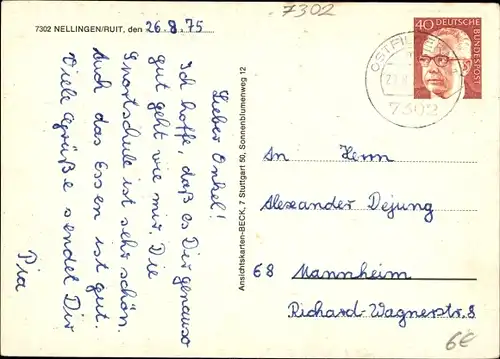 7302 NELLINGEN/RUIT, den 26.8.75
Lieber Onkel!
Ich hoffe, daß es Dir genauso
gut geht wie mir. Die
Sportschule ist sehr schön.
Auch das Essen ist gut.
Viele Grüße sendet Dir
Pia
Ansichtskarten-BECK, 7 Stuttgart 50, Sonnenblumenweg 12
7302
40 DEUTSCHE
BUNDESPOST
7302
An Herrn
Alexander Dejung
68 Mannheim
Richard-Wagnerstr. 8
6€